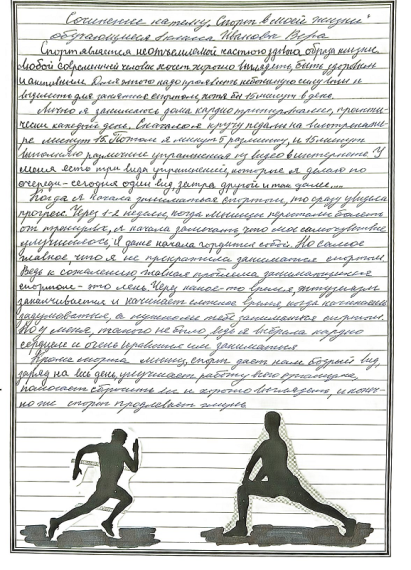 Сочинение на тему "Спорт в моей жизни"
обучающейся 8 класса Иванова Вера
Спорт является неотъемлемой частью здорового образа жизни.
Любой современный человек хочет хорошо выглядеть, быть здоровым
и активным. Для этого надо проявить небольшую силу воли и
выделить для занятия спортом, хотя бы 15 минут в день.
Лично я занимаюсь дома кардио тренировками, практи-
чески каждый день. Сначала я кручу педали на велотренаже-
ре минут 15. Потом я минут 5 разминку, и 15 минут
выполняю различные упражнения из видео в интернете. У
меня есть три вида упражнений, которые я делаю по
очереди - сегодня один вид завтра другой и так далее...
Когда я начала заниматься спортом, то сразу увидела
прогресс. Через 1-2 недели, когда мышцы перестали болеть
от тренировок, я начала замечать, что мое самочувствие
улучшилось, я даже начала гордится собой. Но самое
главное, что я не прекратила заниматься спортом.
Ведь к сожалению, главная проблема занимающихся
спортом - это лень. Через какое-то время, энтузиазм
заканчивается и начинает время, когда начинаешь
задумываться, а нужно ли тебе заниматься спортом.
Но у меня, такого не было, ведь я выбрала кардио
сердцем и очень нравится им заниматься
Кроме мышц, спорт дает нам бодрый вид,
заряд на весь день, улучшает работу всего организма,
помогает сбросить вес и хорошо выглядеть, и конеч-
но же спорт продлевает жизнь.